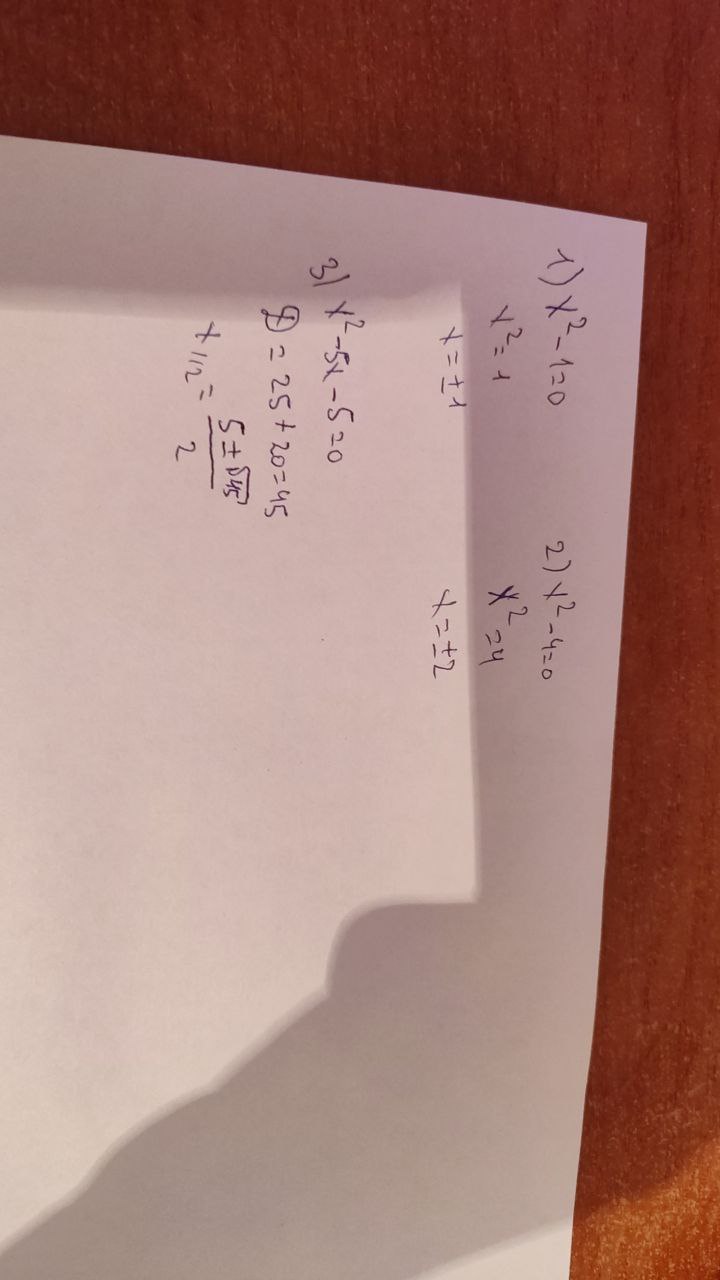 1) x² - 1 = 0
x² = 1
x = ± 1
2) x² - 4 = 0
x² = 4
x = ± 2
3) x² - 5x - 5 = 0
D = 25 + 20 = 45
x 1/2 = (5 ± √45) / 2